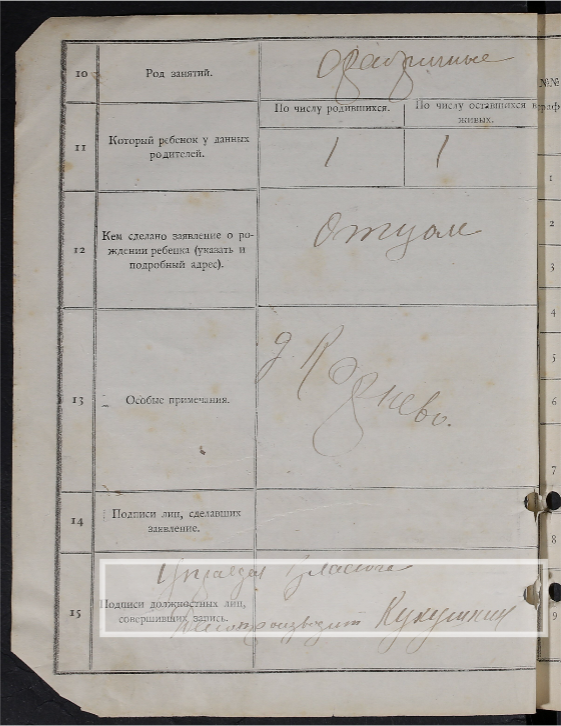 10 Род занятий.
По числу родившихся. По числу оставшихся в живых.
11 Который ребенок у данных родителей. 1 1
12 Кем сделано заявление о рождении ребенка (указать и подробный адрес). Отцом
13 Особые примечания. д.
14 Подписи лиц, сделавших заявление.
15 Подписи должностных лиц, совершивших запись.
Делопроизводит Кукушкин
№№
раф
1
2
3
4
5
6
7
8
9